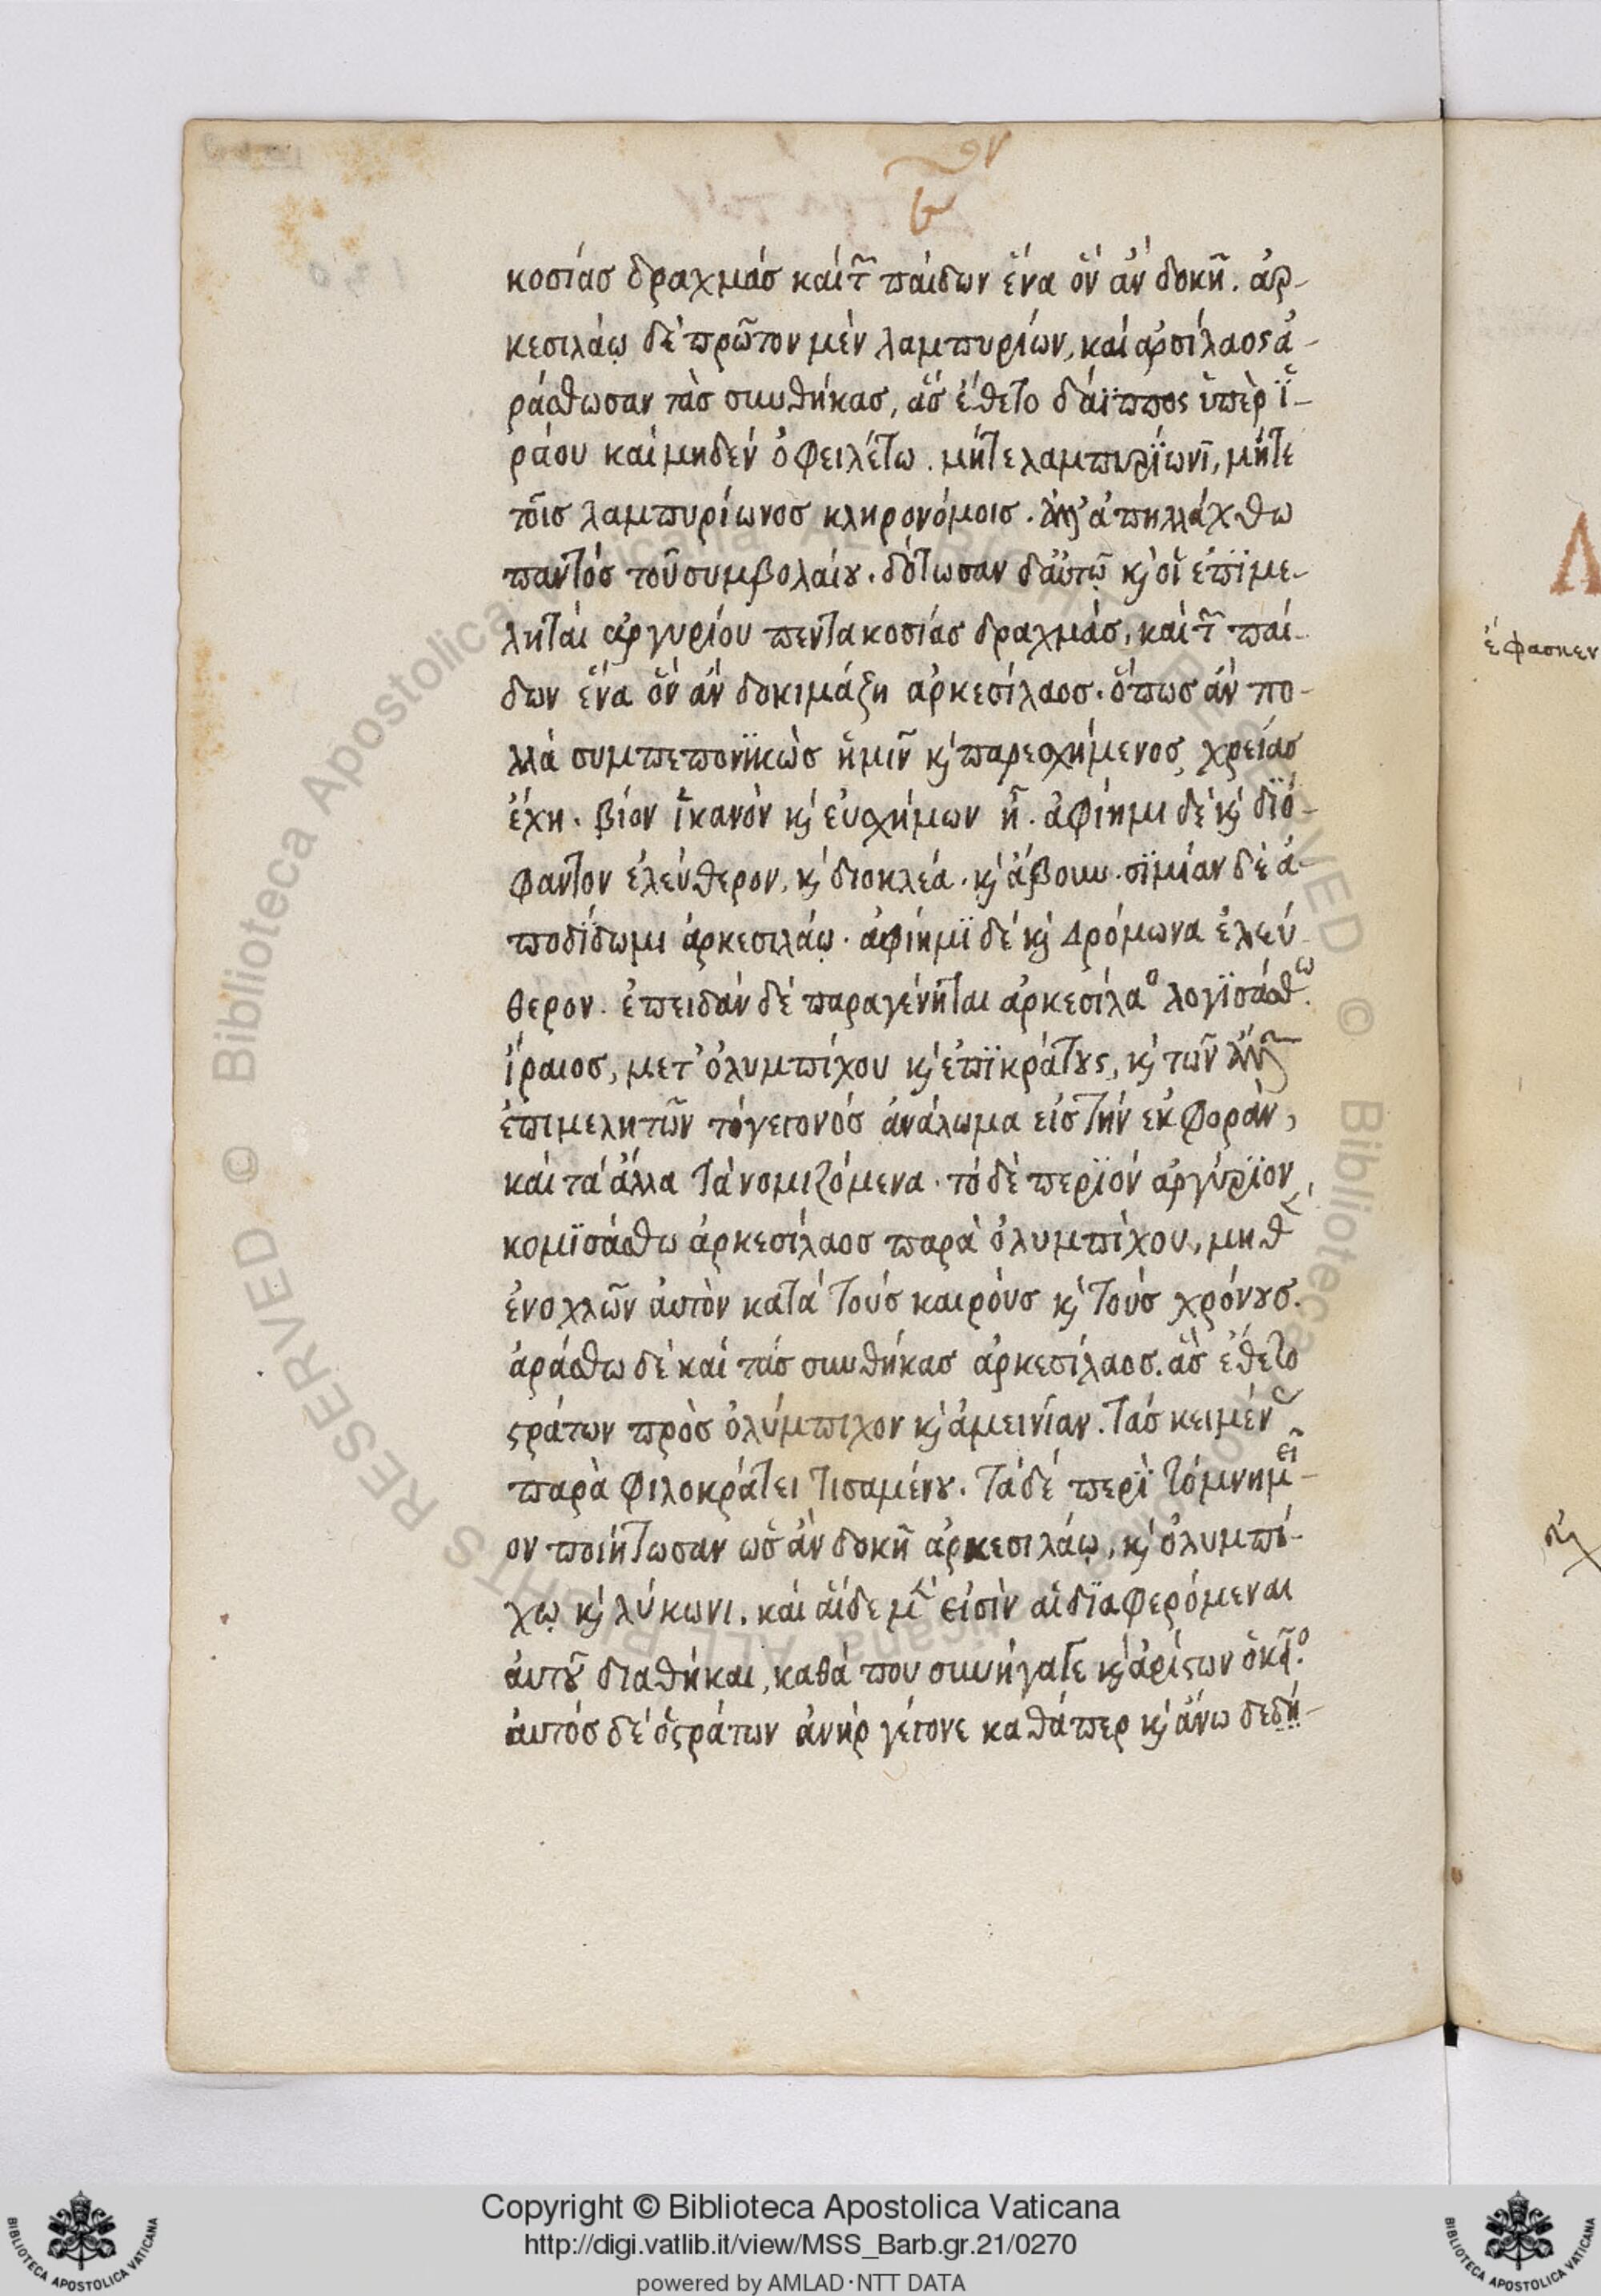 κοσίας δραχμάς καί τ̃ παίδων ἕνα ὅν ἄν δοκῆ. ἀρ-
κεσιλάῳ δέ πρῶτον μέν λαμπυρίων, καί ἀρσίλαος ἀ-
ράσθωσαν τὰς συνθήκας, ἅς ἔθετο δάϊππος ὑπὲρ ἱ-
ράου καί μηδέν ὀφειλέτω. μήτε λαμπυρίωνι, μήτε
τοῖς λαμπυρίωνος κληρονόμοις. ἀπηλλάχθω
παντός τοῦ συμβολαίȣ. δότωσαν δ'αὐτῷ κ̀ οἱ ἐπϊμε-
ληταί ἀργυρίου πεντακοσίας δραχμάς, καί τ̃ παί-
δων ἕνα ὅν ἄν δοκιμάζη ἀρκεσίλαος. ὅπως ἄν πο-
λλά συμπεπονϊκώς ἡμῖν κ̀ παρεσχήμενος χρείας
ἔχη. βίον ἱκανόν κ̀ εὐσχήμων ἦ. ἀφίημι δέ κ̀ διό-
φαντον ἐλεύθερον, κ̀ διοκλέα. κ̀ ἄβουν. σϊμίαν δέ ἀ-
ποδίδωμι ἀρκεσιλάῳ. ἀφίημϊ δέ κ̀ Δρόμωνα ἐλεύ-
θερον. ἐπειδάν δέ παραγένηται ἀρκεσίλαο λογϊσάσθω.
ἵραιος, μετ' ὀλυμπίχου κ̀ ἐπϊκράτȣς, κ̀ τῶν
ἐπιμελητῶν τό γεγονός ἀνάλωμα εἰς τήν ἐκφοράν,
καί τά ἄλλα τά νομιζόμενα. τό δέ περϊόν ἀργύρϊον
κομϊσάσθω ἀρκεσίλαος παρά ὀλυμπίχου, μηθὲν
ἐνοχλῶν αὐτόν κατά τούς καιρούς κ̀ τούς χρόνȣς.
ἀράσθω δέ καί τάς συνθήκας ἀρκεσίλαος. ἅς ἔθετο
ϛράτων πρός ὀλύμπιχον κ̀ ἀμεινίαν. τάς κειμένας
παρά φιλοκράτει τισαμένȣ. τά δέ περϊ τό μνημεῖ-
ον ποιήτωσαν ὡς ἄν δοκῆ ἀρκεσιλάῳ, κ̀ ὀλυμπί-
χῳ κ̀ λύκωνι. καί αἵδε μὲν εἰσίν αἱ δϊαφερόμεναι
αὐτȣ̃ διαθήκαι, καθά που συνήγαγε κ̀ ἀρίϛων ὁ κεῖο.
αὐτός δέ ὁ ϛράτων ἀνήρ γέγονε καθάπερ κ̀ ἄνω δεδή-
ἔφασκεν
Copyright © Biblioteca Apostolica Vaticana
http://digi.vatlib.it/view/MSS_Barb.gr.21/0270
powered by AMLAD·NTT DATA